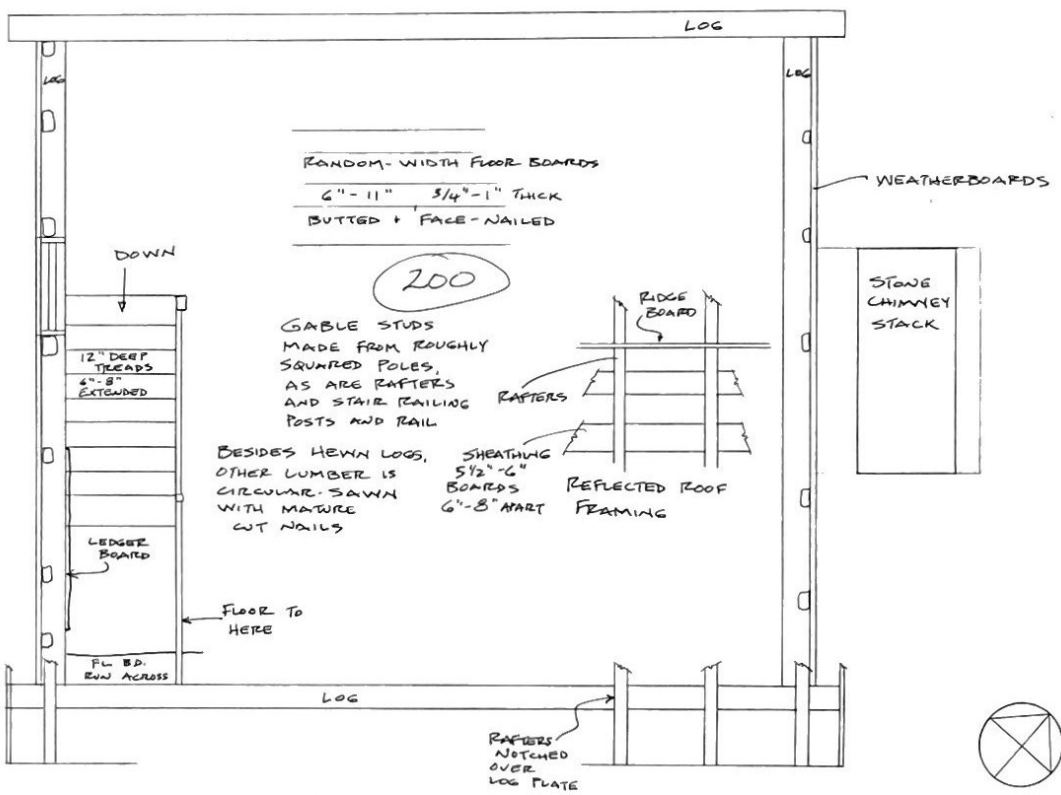 LOG
LOG
LOG
RANDOM-WIDTH FLOOR BOARDS
6"-11" 3/4"-1" THICK
BUTTED + FACE-NAILED
WEATHERBOARDS
DOWN
200
STONE
CHIMNEY
STACK
RIDGE
BOARD
GABLE STUDS
MADE FROM ROUGHLY
SQUARED POLES,
AS ARE RAFTERS
AND STAIR RAILING
POSTS AND RAIL
12" DEEP
TREADS
6"-8"
EXTENDED
RAFTERS
BESIDES HEWN LOGS,
OTHER LUMBER IS
CIRCULAR-SAWN
WITH MATURE
CUT NAILS
SHEATHING
5 1/2"-6"
BOARDS
6"-8" APART
REFLECTED ROOF
FRAMING
LEDGER
BOARD
FLOOR TO
HERE
FL BD.
RUN ACROSS
LOG
RAFTERS
NOTCHED
OVER
LOG PLATE